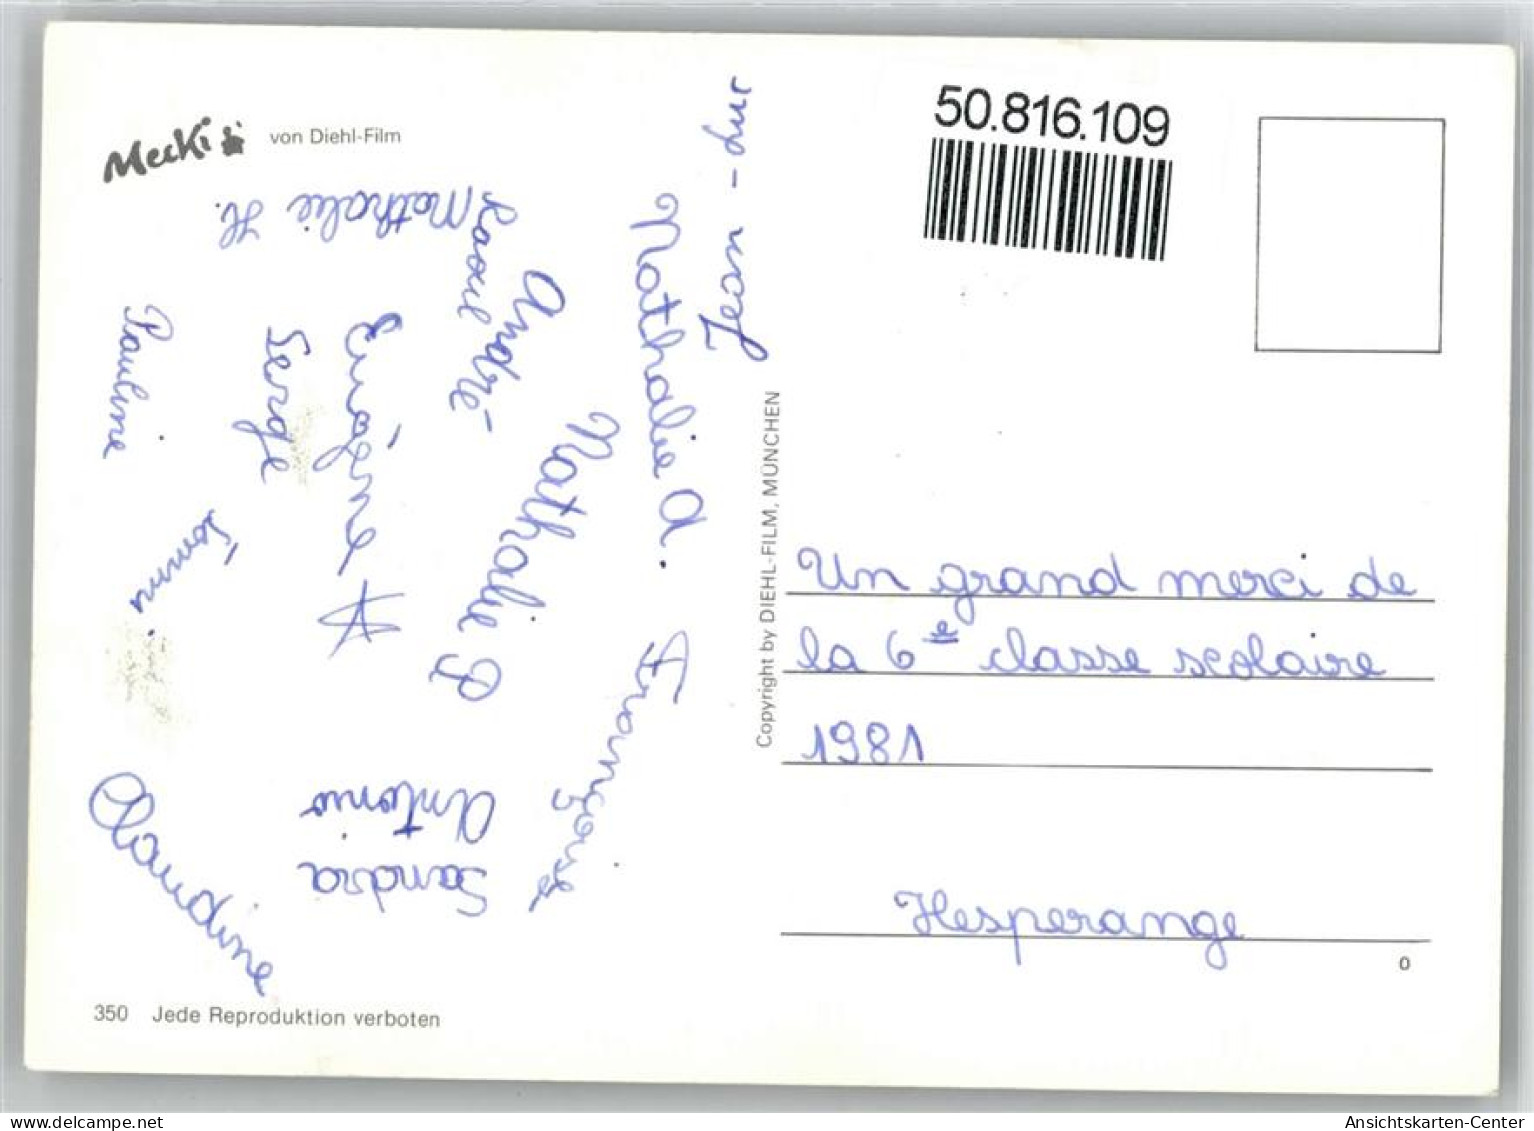 Mecki von Diehl-Film
50.816.109
Jean-
Nathalie H.
Raoul
André
Nathalie A.
Pauline
Serge
Eugène
Nathalie P
Françoise
Antonio
Sandra
Claudine
Copyright by DIEHL-FILM, MÜNCHEN
Un grand merci de
la 6e classe scolaire
1981
Hesperange
0
350 Jede Reproduktion verboten
delcampe.net
Ansichtskarten-Center